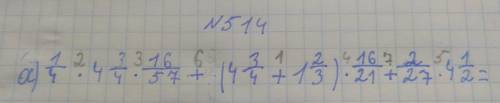 №514
а) 1/4 · 4 3/4 · 16/57 + (4 3/4 + 1 2/3) · 16/21 + 2/27 · 4 1/2 =